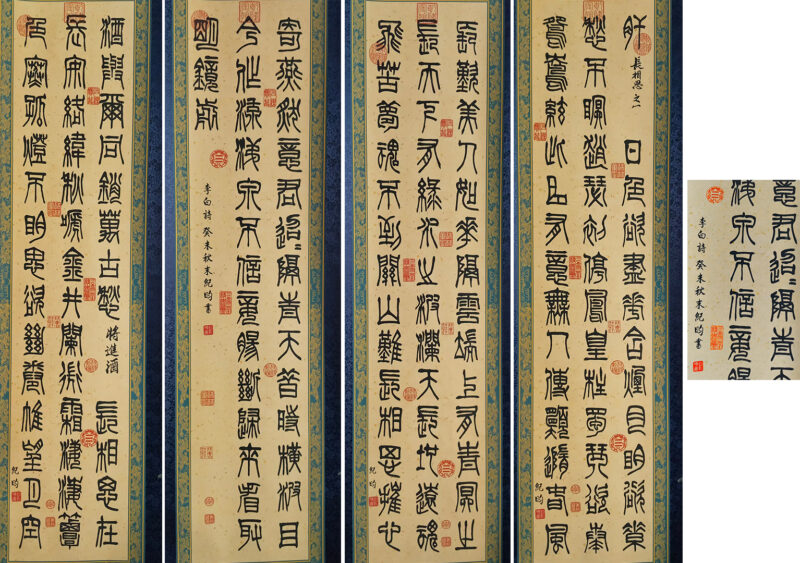 酒與爾同銷萬古愁 將進酒 長相思在
長安絡緯秋啼金井闌微霜淒淒簟
色寒孤燈不明思欲絕卷帷望月空
紀昀
寄燕然意君迢〻隔青天昔時橫波目
今作流淚泉不信妾腸斷歸來看取
明鏡前
李白詩 癸未秋末紀昀書
長歎美人如花隔雲端上有青冥之
長天下有淥水之波瀾天長地遠魂
飛苦夢魂不到關山難長相思摧心
肝 長相思之一 日色欲盡花含煙月明欲素
愁不眠趙瑟初停鳳皇柱蜀琴欲奉
鴛鴦絃此曲有意無人傳願隨春風
紀昀
意君迢〻隔青天
淚泉不信妾腸
李白詩 癸未秋末紀昀書